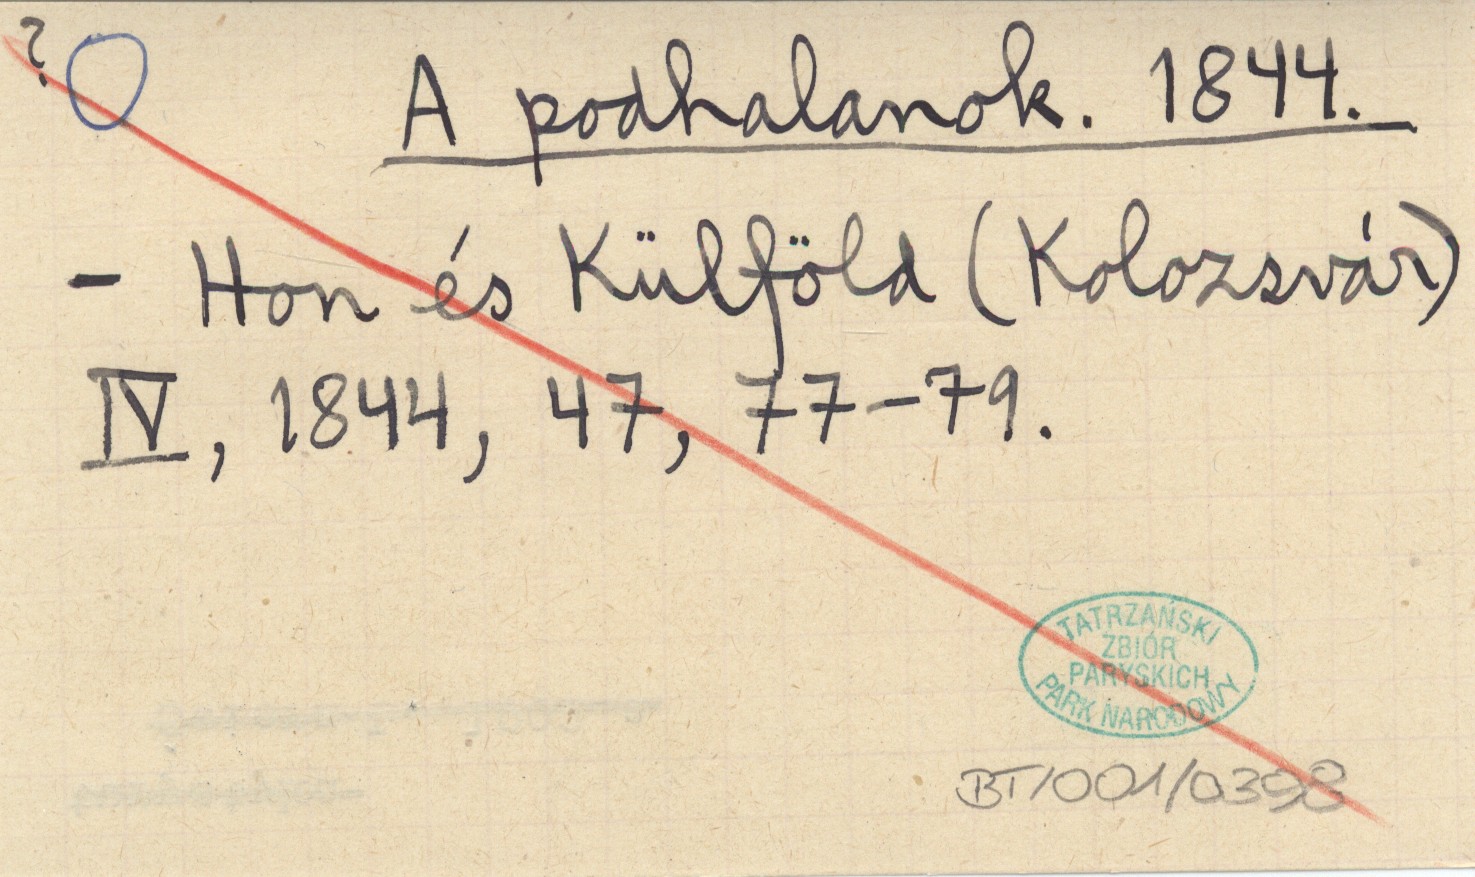 ?
A podhalanok. 1844.
- Hon és Külföld (Kolozsvár)
IV, 1844, 47, 77-79.
TATRZAŃSKI
ZBIÓR
PARYSKICH
PARK NARODOWY
BT/001/0398